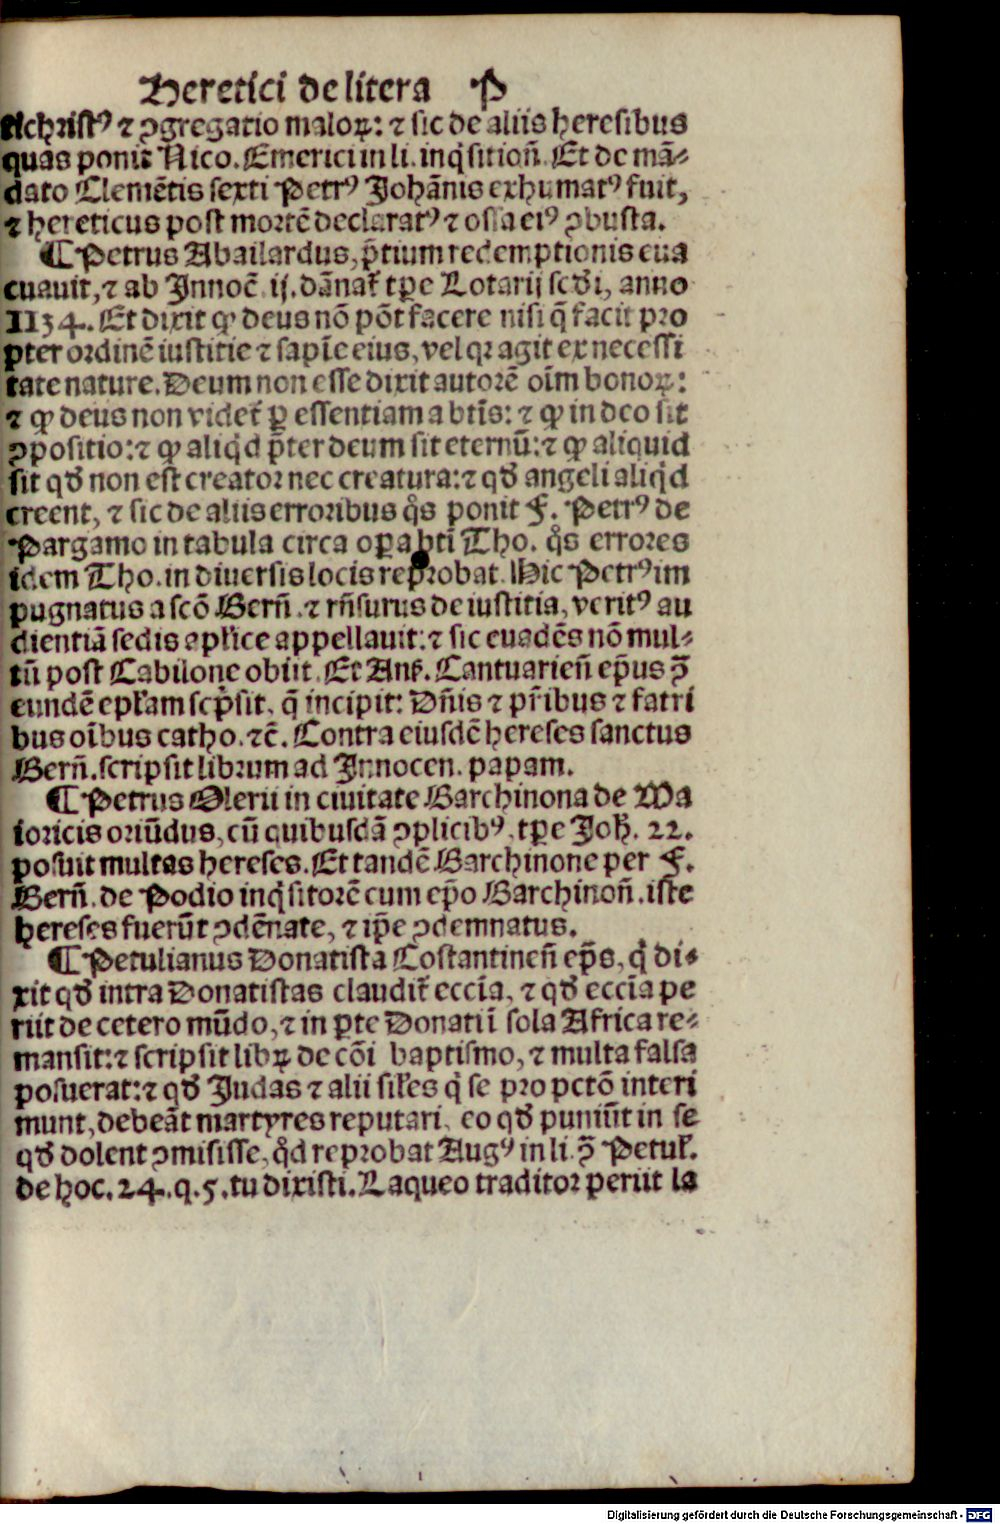 Heretici de litera P
tichristꝰ ⁊ ꝯgregatio maloꝝ: ⁊ sic de aliis heresibus
quas ponit Nico. Emerici in li. inq̇sitioñ. Et de mā⸗
dato Clemētis sexti Petrꝰ Johānis exhumatꝰ fuit,
⁊ hereticus post mortē declaratꝰ ⁊ ossa eiꝰ ꝯbusta.
¶ Petrus Abailardus, p̄tium redemptionis eua
cuauit, ⁊ ab Innoc̄ .ij. dānat̄ tꝑe Lotarij scd̄i, anno
1134. Et dixit ꝙ deus nō pōt facere nisi q̄ facit pro
pter ordinē iustitie ⁊ sapīe eius, vel qꝛ agit ex necessi
tate nature. Deum non esse dixit autorē oīm bonoꝝ:
⁊ ꝙ deus non videt̄ ꝑ essentiam a btīs: ⁊ ꝙ in deo sit
ꝯpositio: ⁊ ꝙ aliq̇d p̄ter deum sit eternū: ⁊ ꝙ aliquid
sit qď non est creator nec creatura: ⁊ qď angeli aliq̇d
creent, ⁊ sic de aliis erroribus q̊s ponit F. Petrꝰ de
Pargamo in tabula circa oꝑa bti Tho. q̊s errores
idem Tho. in diuersis locis reprobat. Hic Petrꝰ im
pugnatus a scō Berñ. ⁊ rñsurus de iustitia, veritꝰ au
dientiā sedis aplice appellauit: ⁊ sic euadēs nō mul⸗
tū post Cabilone obiit. Et Ans. Cantuarieñ ep̄us ꝯ̄
eundē epl̄am scṗsit, q̄ incipit: Dñis ⁊ pr̄ibus ⁊ fatri
bus oībus catho. ⁊c̄. Contra eiusdē hereses sanctus
Berñ. scripsit librum ad Innocen. papam.
¶ Petrus Olerii in ciuitate Barchinona de Ma
ioricis oriūdus, cū quibusdā ꝯplicibꝰ, tꝑe Joh̄. 22.
posuit multas hereses. Et tandē Barchinone per F.
Berñ. de Podio inq̇sitorē cum ep̄o Barchinoñ. iste
hereses fuerūt ꝯdēnate, ⁊ ip̄e ꝯdemnatus.
¶ Petulianus Donatista Costantineñ ep̄s, q̇ di⸗
xit qď intra Donatistas claudit̄ eccīa, ⁊ qď eccīa pe
riit de cetero mūdo, ⁊ in ꝑte Donatii sola Africa re⸗
mansit: ⁊ scripsit libꝝ de cōi baptismo, ⁊ multa falsa
posuerat: ⁊ qď Judas ⁊ alii sil̄es q̇ se pro pctō interi
munt, debeāt martyres reputari, eo qď puniūt in se
qď dolent ꝯmisisse, q̊d reprobat Augꝰ in li. ꝯ̄ Petul̄.
de hoc. 24. q. 5. tu dixisti. Laqueo traditor periit la
Digitalisierung gefördert durch die Deutsche Forschungsgemeinschaft - DFG